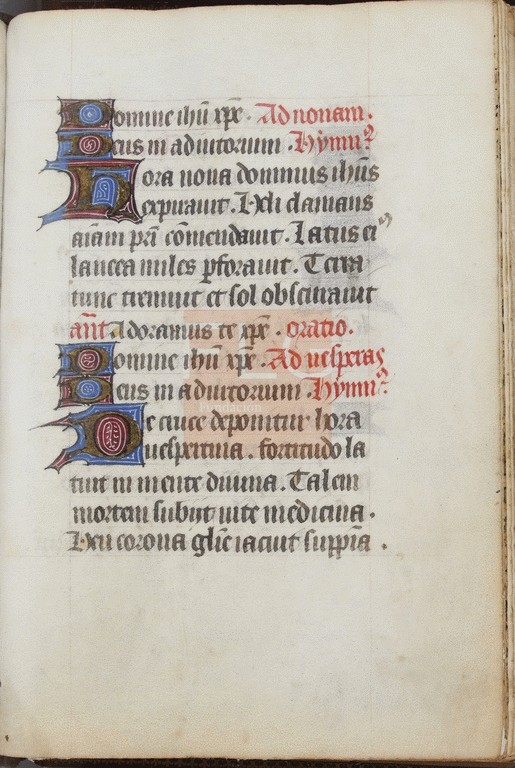 Domine ihū xp̄e . Ad nonam.
Deus in adiutorium . Hymnꝰ
Hora nona dominus ihūs
expirauit . Heli clamans
aīam pr̄i cōmendauit . Latus eiꝰ
lancea miles ꝑforauit . Terra
tunc tremuit et sol obscurauit
ant̄ Adoramus te xp̄e . oratio.
Domine ihū xp̄e . Ad uesperas
Deus in adiutorium . Hymnꝰ
De cruce deponitur hora
uespertina . fortitudo la
tuit in mente diuina . Talem
mortem subijt uite medicina .
Heu corona glīe iacuit suppīa .
Fundación